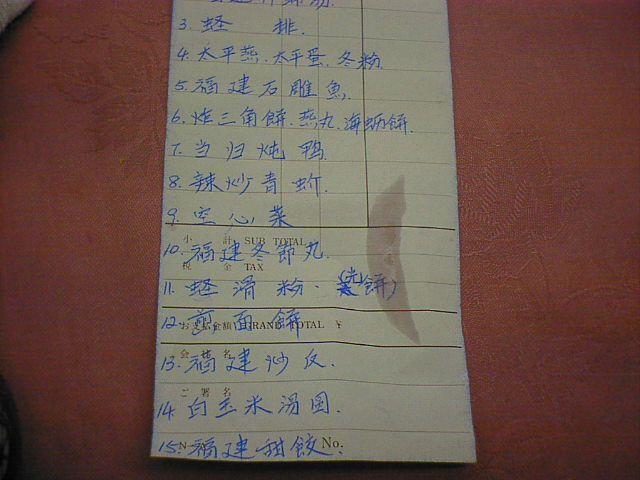 3. 蛏 排.
4. 太平燕. 太平蛋. 冬粉.
5. 福建石雕魚.
6. 炸三角餅. 燕丸. 海蛎餅.
7. 当归炖鸭.
8. 辣炒青蚧.
9. 空心菜
小 計 SUB TOTAL
10. 福建冬節丸.
税 金 TAX
11. 蛏滑粉. 餅)
12. 煎面餅
お支払金額 GRAND TOTAL ¥
会 名
13. 福建炒
ご 署 名
14. 白玉米汤圆.
15. 福建甜餃.
No.